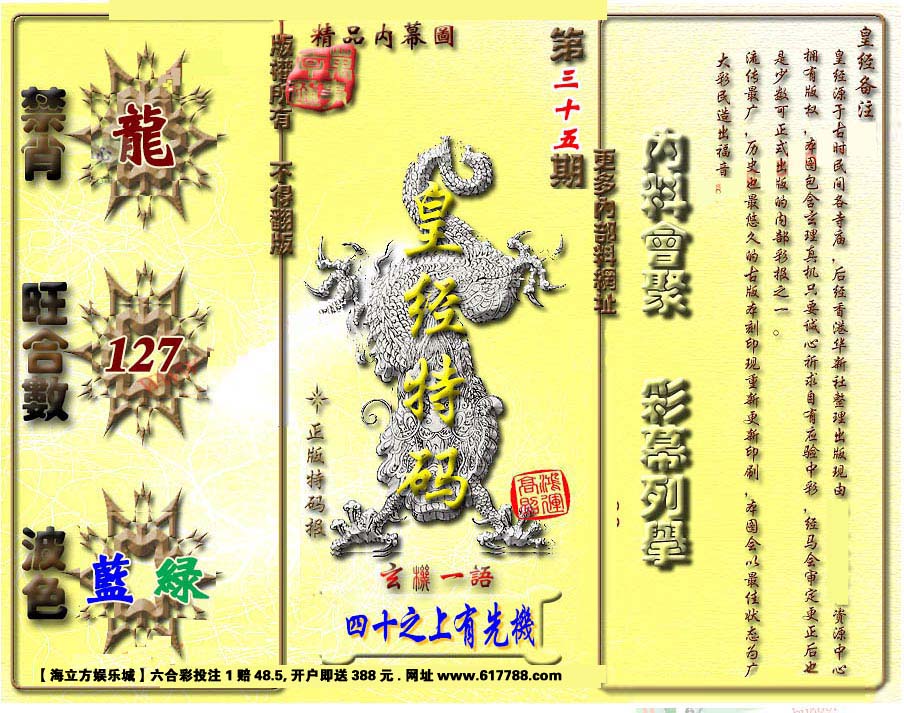 精品内幕圖
第三十五期
版權所有 不得翻版
更多內部料網址
禁肖
龍
旺合數
127
波色
藍 綠
皇经特码
正版特码报
鴻運高照
玄機一語
四十之上有先機
内料會聚
彩幕列舉
皇经备注
皇经源于古时民间各寺庙,后经香港华新社整理出版现由 资源中心
拥有版权,本图包含玄理真机只要诚心祈求自有应验中彩,经马会审定更正后也
是少数可正式出版的内部彩报之一。
流传最广,历史也最悠久的古版本刻印现重新更新印刷,本图会以最佳状态为广
大彩民造出福音。
【海立方娱乐城】六合彩投注1赔48.5,开户即送388元.网址www.617788.com